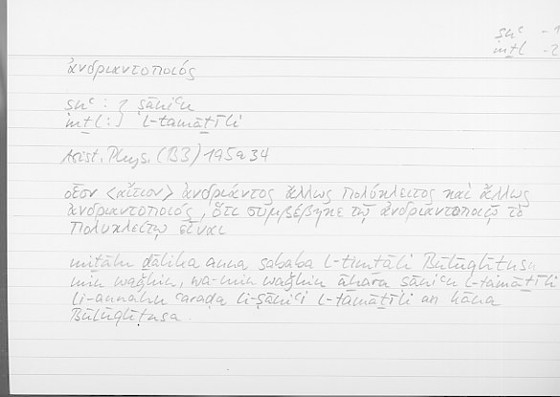 ṣnʿ -1
mṯl -2
ἀνδριαντοποιός
ṣnʿ : 1 ṣāniʿu
mṯl : } l-tamāṯīli
Arist. Phys. (B3) 195a34
οἷον <αἴτιον> ἀνδριάντος ἄλλως Πολύκλειτος καὶ ἄλλως
ἀνδριαντοποιός, ὅτι συμβέβηκε τῷ ἀνδριαντοποιῷ τὸ
Πολυκλείτῳ εἶναι
miṯālu ḏālika anna sababa l-timṯāli Būlūqlīṭusu
min waǧhin, wa-min waǧhin āḫara ṣāniʿu l-tamāṯīli
li-annahu ʿaraḍa li-ṣāniʿi l-tamāṯīli an kāna
Būlūqlīṭusa.